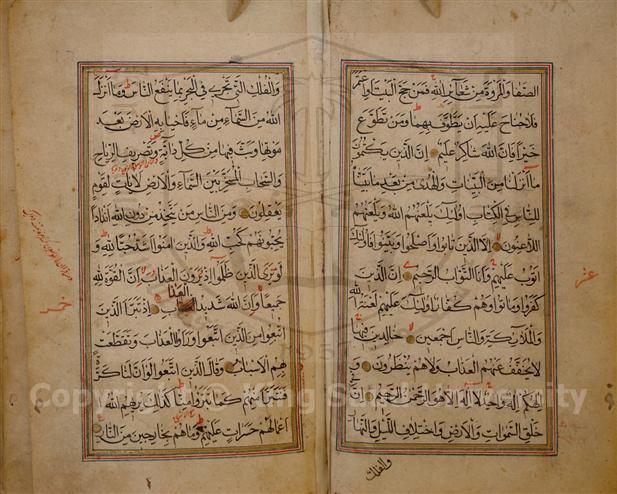 الصفا والمروة من شعائر الله فمن حج البيت او اعتمر
فلا جناح عليه ان يطوف بهما ومن تطوع
خيرا فان الله شاكر عليم ان الذين يكتمون
ما انزلنا من البينات والهدى من بعد ما بيناه
للناس في الكتاب اولئك يلعنهم الله ويلعنهم
اللاعنون الا الذين تابوا واصلحوا وبينوا فاولئك
اتوب عليهم وانا التواب الرحيم ان الذين
كفروا وماتوا وهم كفار اولئك عليهم لعنة الله
والملائكة والناس اجمعين خالدين فيها
لا يخفف عنهم العذاب ولا هم ينظرون و
الهكم اله واحد لا اله الا هو الرحمن الرحيم ان في
خلق السموات والارض واختلاف الليل والنهار
والفلك
والفلك التي تجري في البحر بما ينفع الناس وما انزل
الله من السماء من ماء فاحيا به الارض بعد
موتها وبث فيها من كل دابة وتصريف الرياح
والسحاب المسخر بين السماء والارض لايات لقوم
يعقلون ومن الناس من يتخذ من دون الله اندادا
يحبونهم كحب الله والذين امنوا اشد حبا لله و
لو يرى الذين ظلموا اذ يرون العذاب ان القوة لله
جميعا وان الله شديد العذاب اذ تبرا الذين
اتبعوا من الذين اتبعوا وراوا العذاب وتقطعت
بهم الاسباب وقال الذين اتبعوا لو ان لنا كرة
فنتبرا منهم كما تبرءوا منا كذلك يريهم الله
اعمالهم حسرات عليهم وما هم بخارجين من النار
Copyright © King Saud University
1957